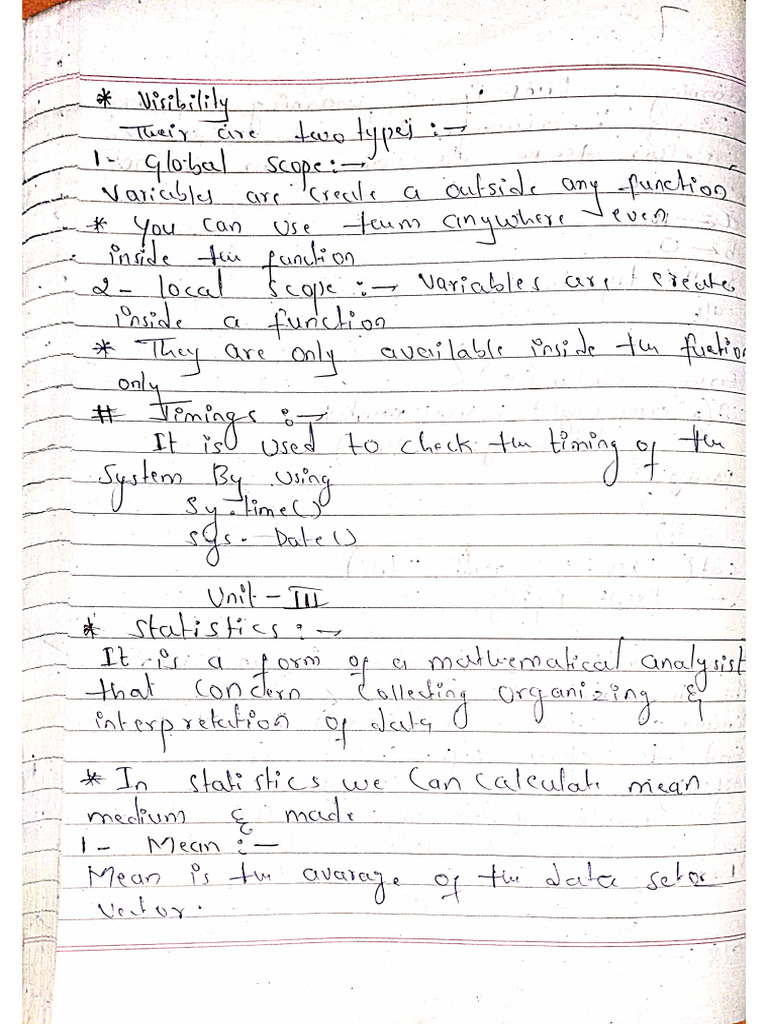 * Visibility
Their are two types :→
1- Global scope:→
Variables are create a outside any function
* You can use them anywhere even
inside the function
2- local scope :→ Variables are create
inside a function
* They are only available inside the fuction
only
# Timings :→
It is used to check the timing of the
System By using
Sy.time()
sys. Date()
Unit - III
* Statistics :→
It is a form of a mathematical analysist
that concern collecting organizing &
interpretation of data
* In statistics we can calculate mean
medium & made
1- Mean :-
Mean is the avarage of the data set or
vector.